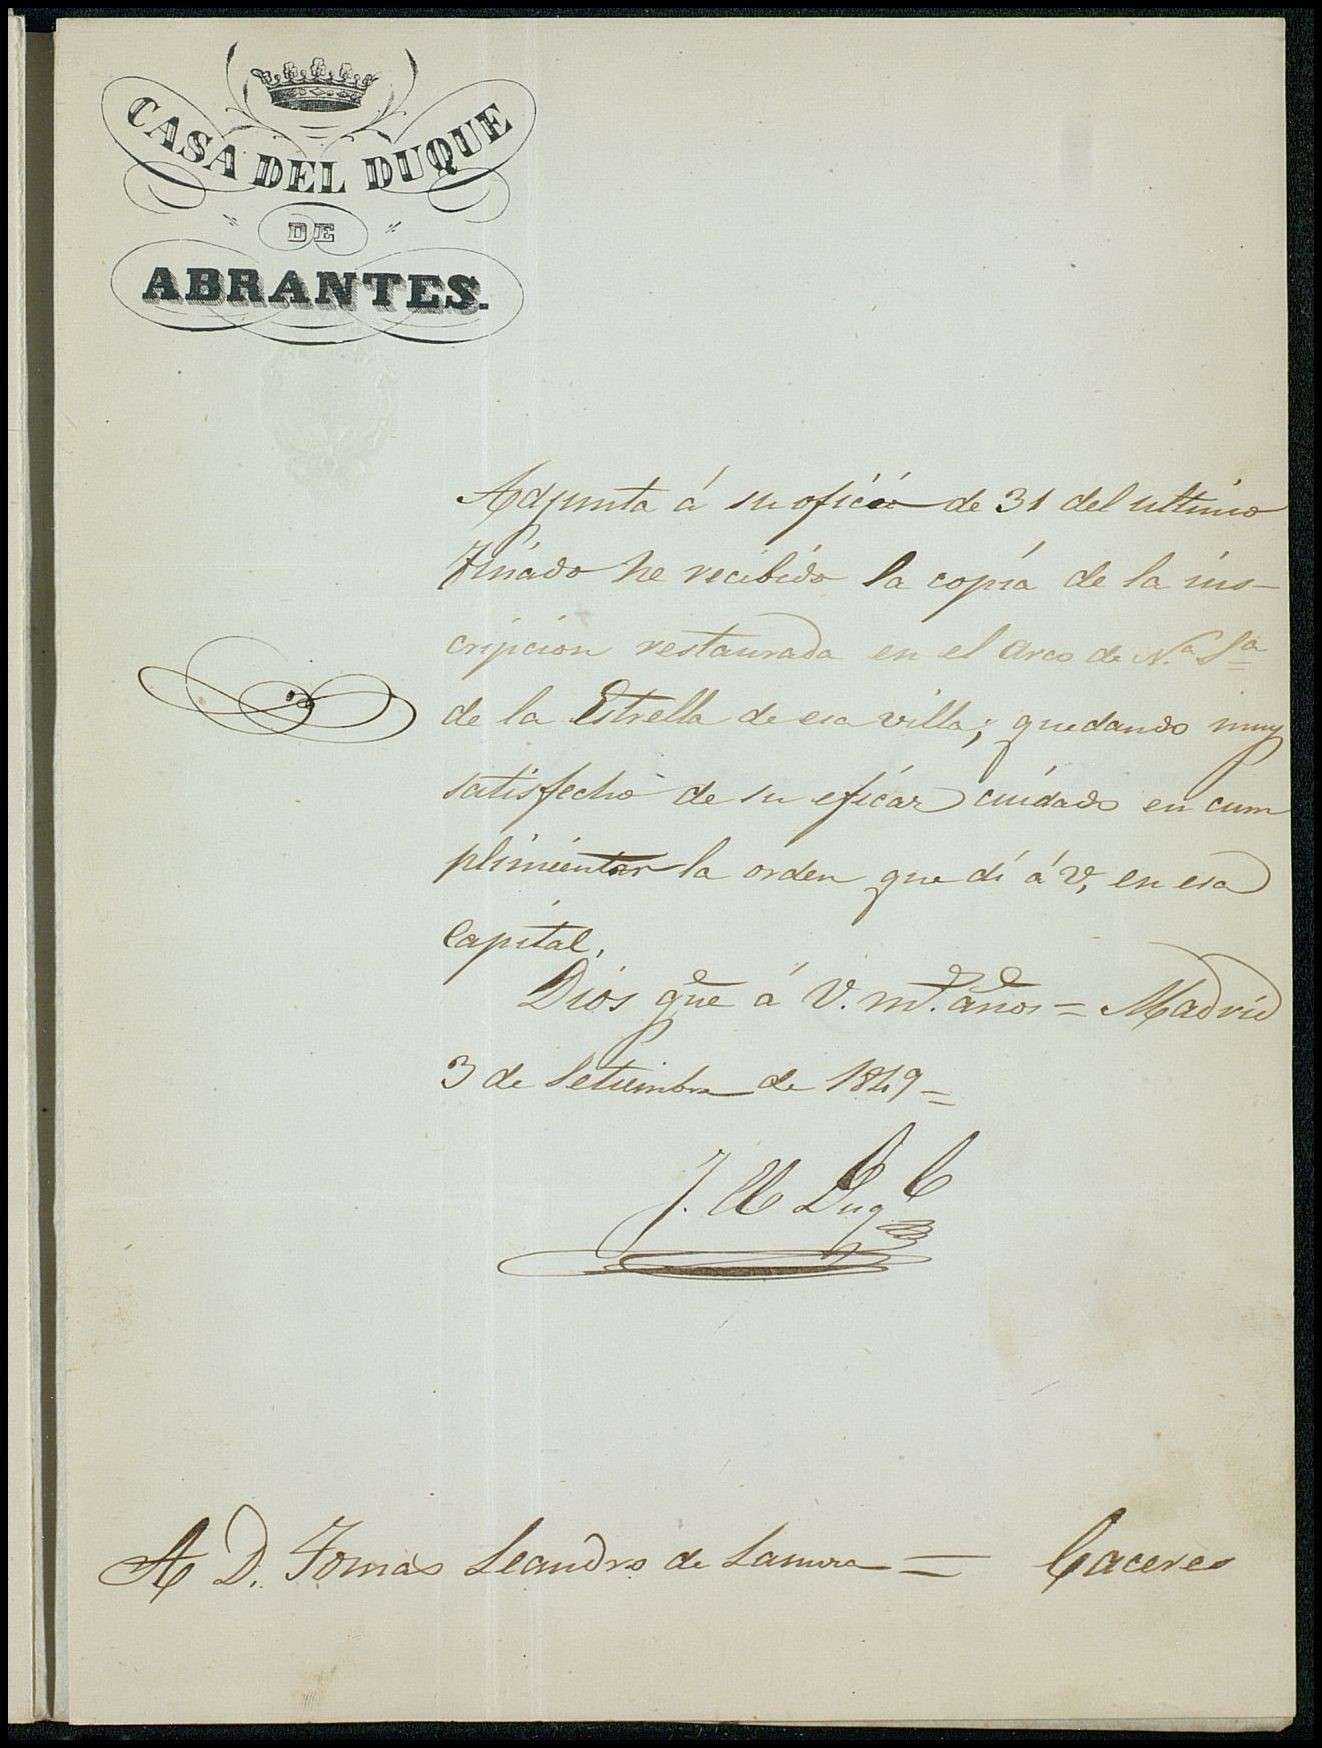 CASA DEL DUQUE
DE
ABRANTES.
Adjunta á su oficio de 31 del ultimo
finado he recibido la copia de la ins-
cripcion restaurada en el arco de N.ª S.ª
de la Estrella de esa villa; quedando muy
satisfecho de su eficaz cuidado en cum
plimientar la orden que dí á V, en esa
Capital.
Dios gue á V. ms. años = Madrid
3 de Setiembre de 1849 =
J. El Duq
A D. Tomás Leandro de Lamora = Caceres